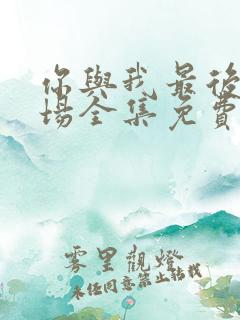 你與我最後
場全集免費
雾里觀燈
未经同意禁止转载